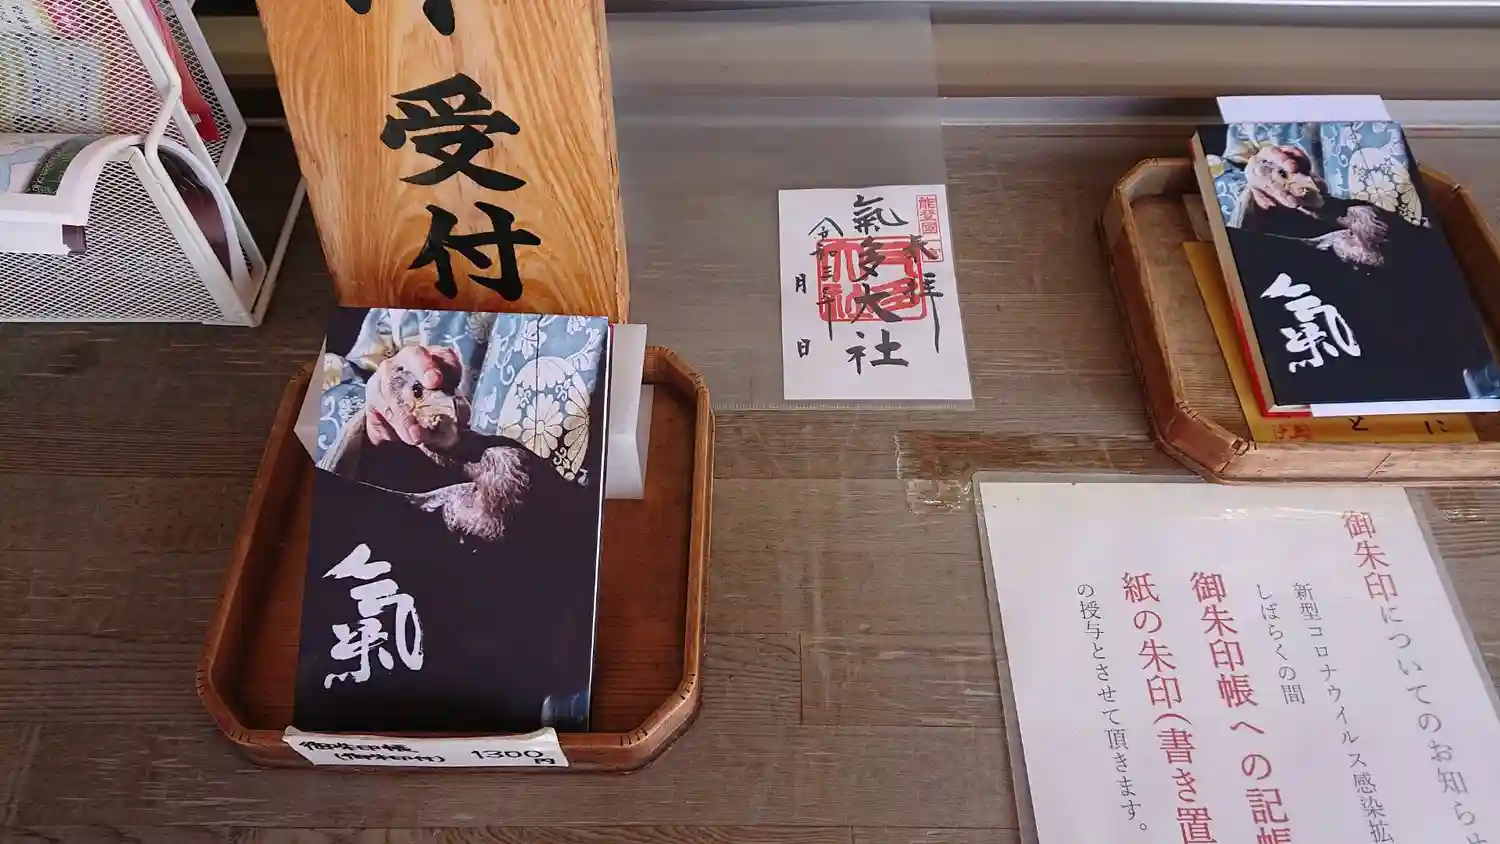 受付
氣
御朱印帳
(御朱印付) 1300円
能登國
奉拝
氣多大社
令和三年
月
日
氣
御朱印についてのお知らせ
新型コロナウイルス感染拡
しばらくの間
御朱印帳への記帳
紙の朱印(書き置
の授与とさせて頂きます。